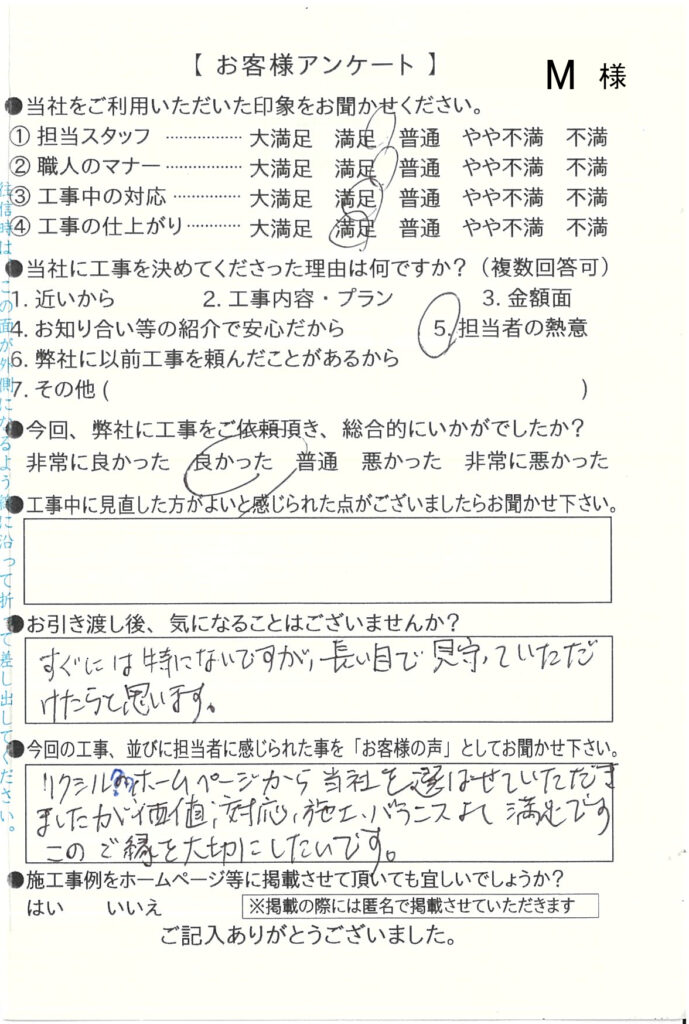 【 お客様アンケート 】
M 様
●当社をご利用いただいた印象をお聞かせください。
① 担当スタッフ ……………… 大満足 満足 普通 やや不満 不満
② 職人のマナー ……………… 大満足 満足 普通 やや不満 不満
③ 工事中の対応 ……………… 大満足 満足 普通 やや不満 不満
④ 工事の仕上がり ………… 大満足 満足 普通 やや不満 不満
●当社に工事を決めてくださった理由は何ですか?(複数回答可)
1. 近いから 2. 工事内容・プラン 3. 金額面
4. お知り合い等の紹介で安心だから 5. 担当者の熱意
6. 弊社に以前工事を頼んだことがあるから
7. その他 ( )
●今回、弊社に工事をご依頼頂き、総合的にいかがでしたか?
非常に良かった 良かった 普通 悪かった 非常に悪かった
●工事中に見直した方がよいと感じられた点がございましたらお聞かせ下さい。
●お引き渡し後、気になることはございませんか?
すぐには特にないですが、長い目で見守っていただ
けたらと思います。
●今回の工事、並びに担当者に感じられた事を「お客様の声」としてお聞かせ下さい。
リクシルのホームページから当社を選ばせていただき
ましたが、価値、対応、施工、バランスよく満足です
このご縁を大切にしたいです。
●施工事例をホームページ等に掲載させて頂いても宜しいでしょうか?
はい いいえ ※掲載の際には匿名で掲載させていただきます
ご記入ありがとうございました。
往信時は、この面が外側になるよう斜に沿って折って差し出してください。